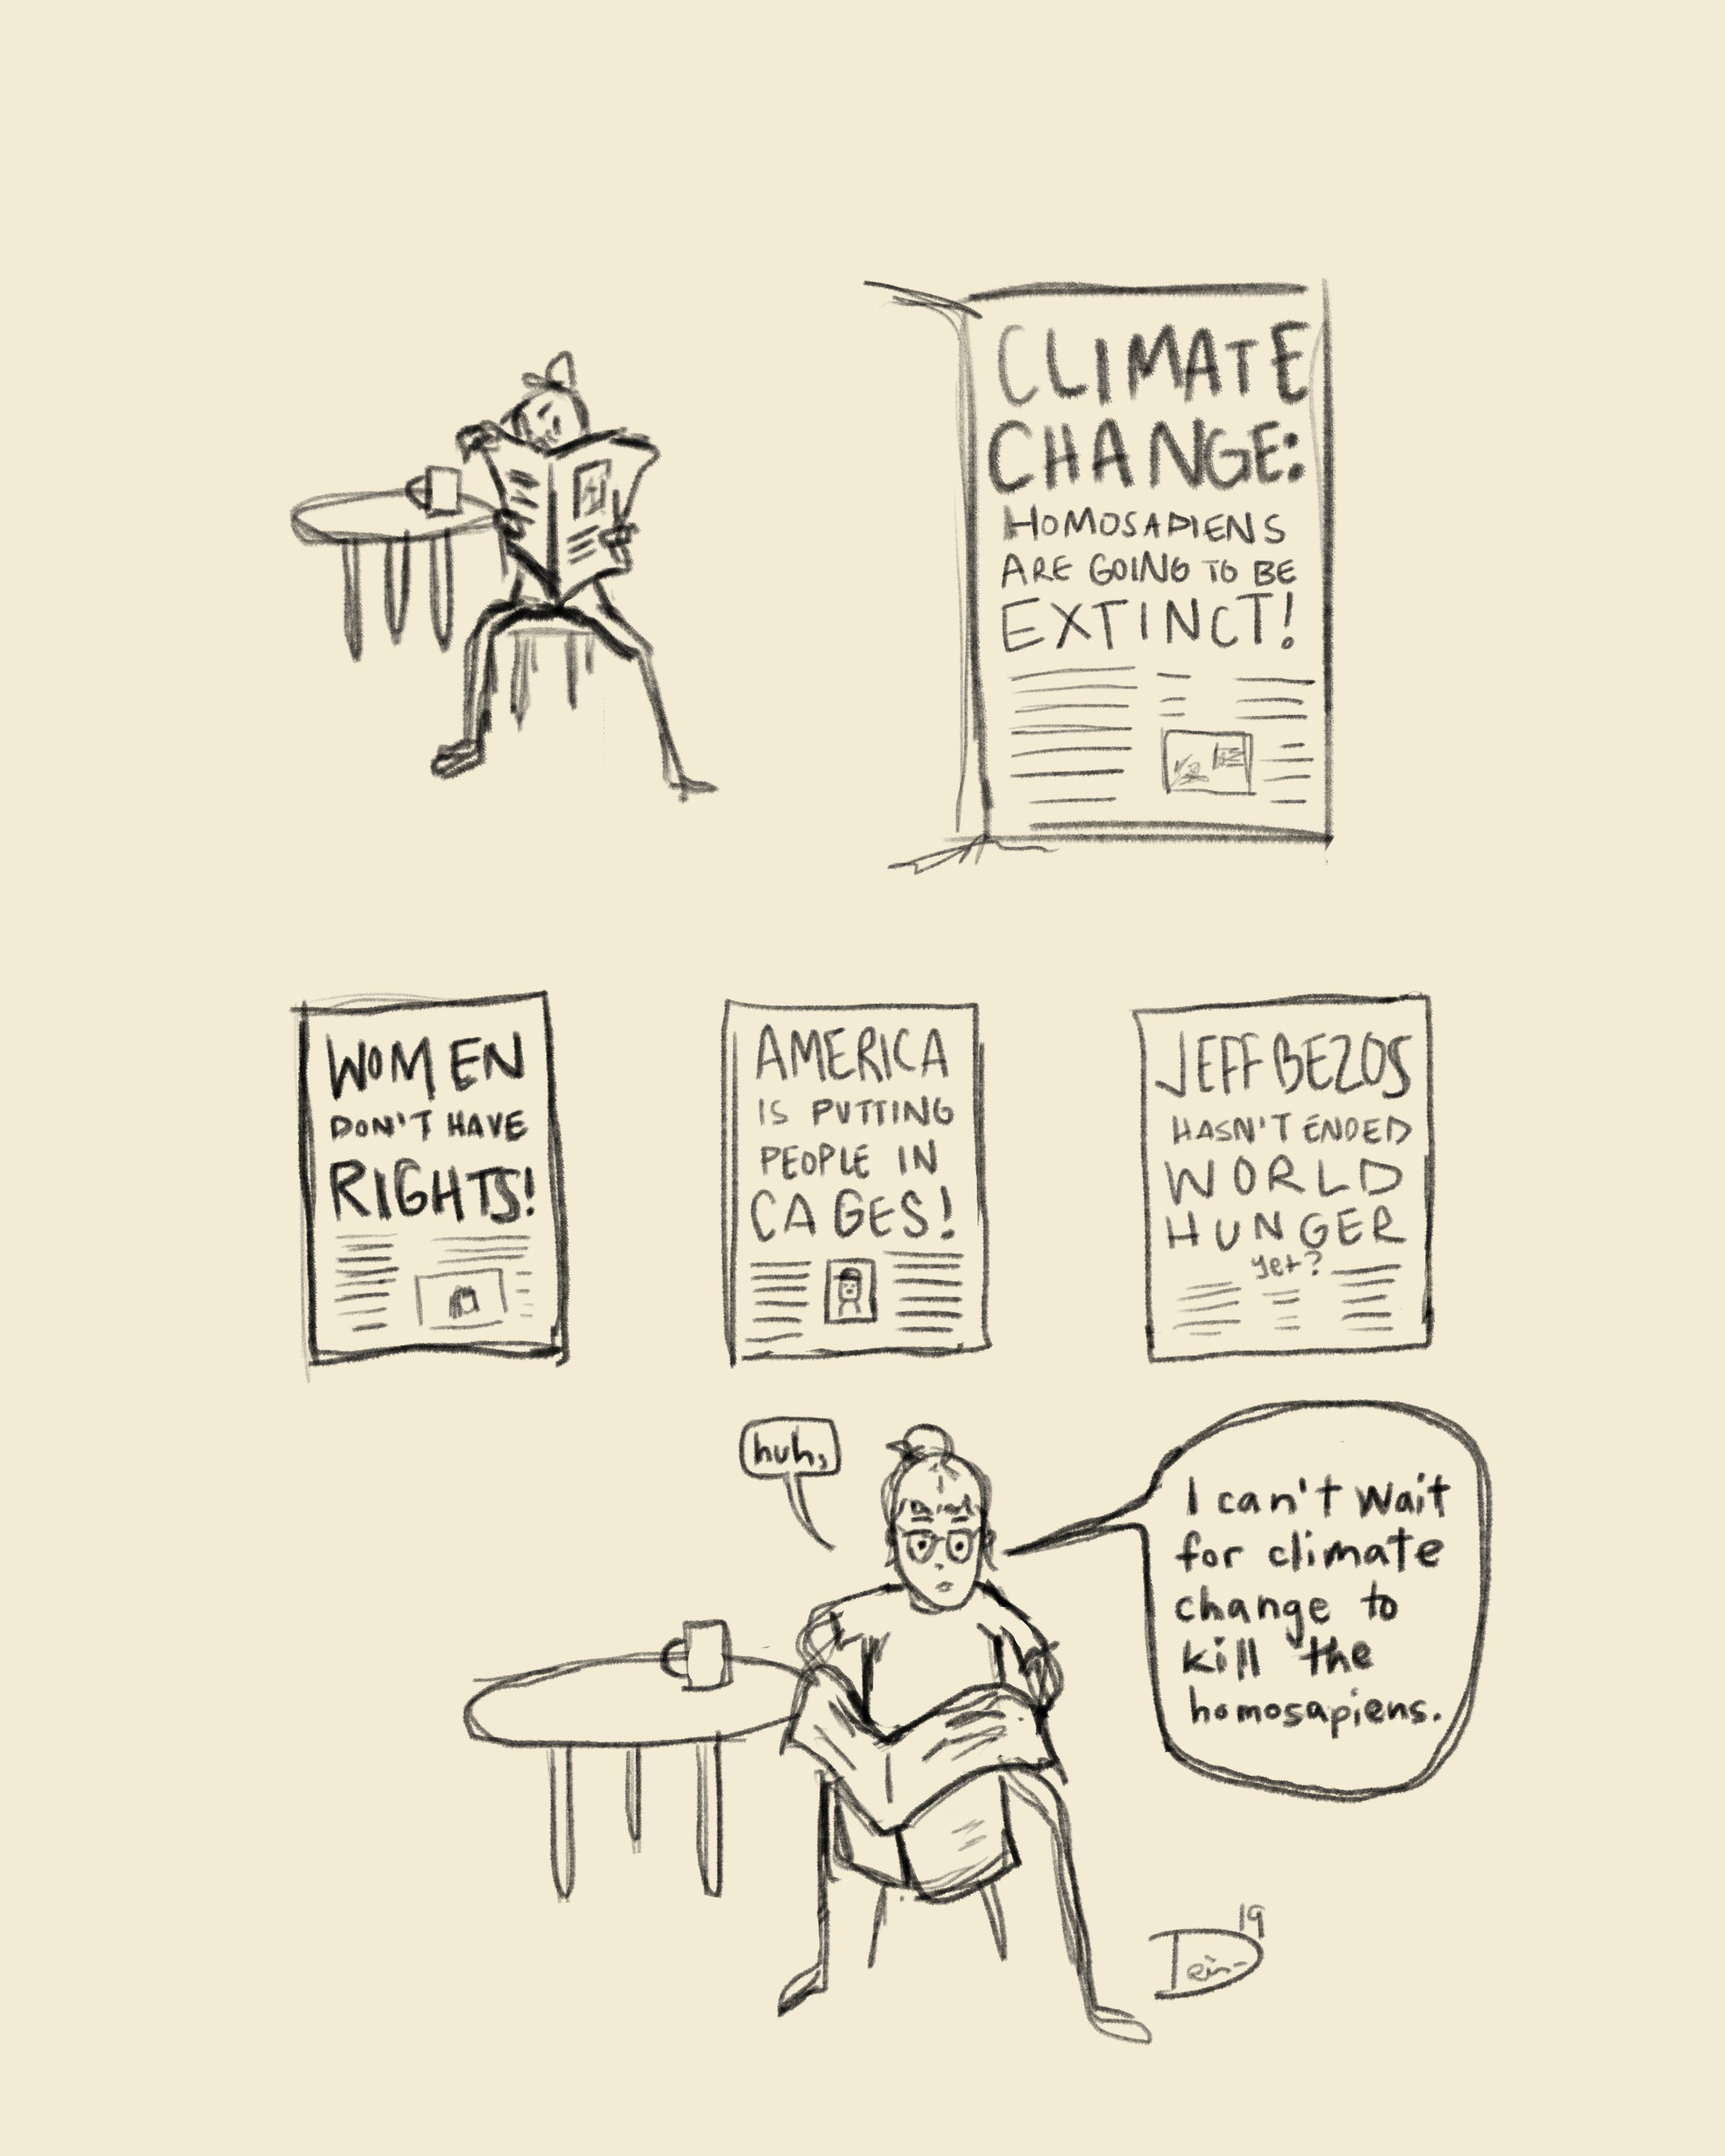 CLIMATE
CHANGE:
HOMOSAPIENS
ARE GOING TO BE
EXTINCT!
WOMEN
DON'T HAVE
RIGHTS!
AMERICA
IS PUTTING
PEOPLE IN
CAGES!
JEFF BEZOS
HASN'T ENDED
WORLD
HUNGER
yet?
huh,
I can't wait
for climate
change to
kill the
homosapiens.
19